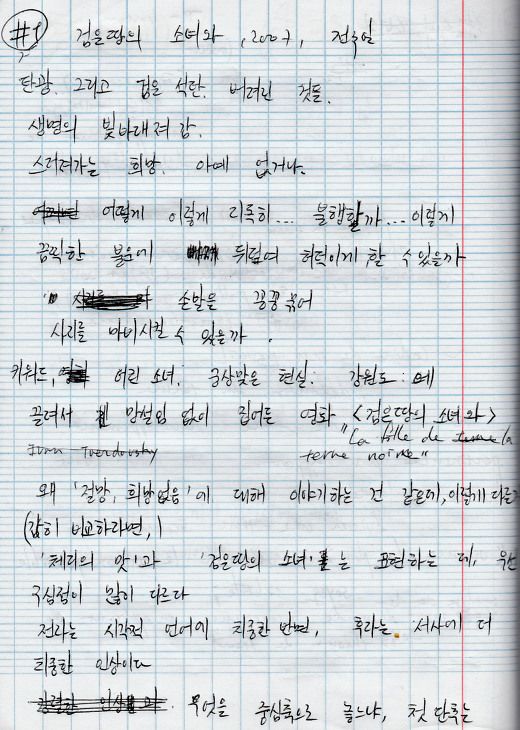 #1 검은땅의 소녀와, 2007, 전수일
탄광. 그리고 검은 석탄. 버려린 것들.
생명의 빛바래져감.
스러져가는 희망. 아예 없거나.
어떻게 이렇게 지독히... 불행할까... 이렇게
끔찍한 불운에 뒤덮여 허덕이게 할 수 있을까
손발을 꽁꽁 묶어
사지를 마비시킬 수 있을까.
키워드, 어린 소녀. 궁상맞은 현실. 강원도 :에
끌려서 망설임 없이 집어든 영화 <검은땅의 소녀와>
"La fille de la
terre noire"
왜 '절망, 희망없음'에 대해 이야기하는 건 같은데, 이렇게 다를
(감히 비교하라면,)
'체리의 맛'과 '검은땅의 소녀'는 표현하는 데, 우선
구심점이 많이 다르다
전자는 시각적 언어에 치중한 반면, 후자는 서사에 더
치중한 인상이다
무엇을 중심축으로 놓느냐, 첫 단추는